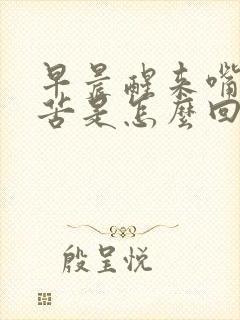 早晨醒来嘴
苦是怎麼回
殷呈悦